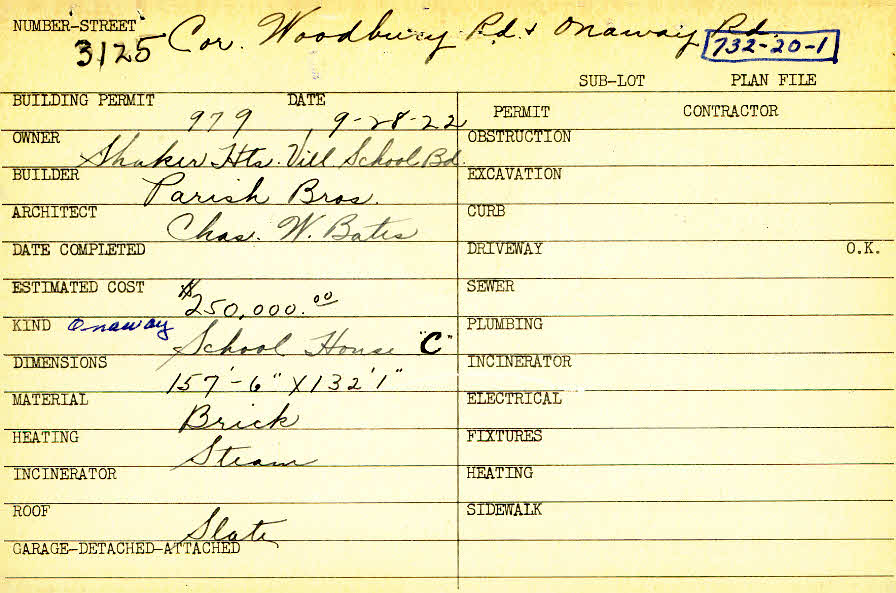 NUMBER-STREET
3125 Cor. Woodbury Rd. & Onaway Rd. 732-20-1
SUB-LOT PLAN FILE
BUILDING PERMIT DATE
979 9-28-22
PERMIT CONTRACTOR
OWNER
Shaker Hts. Vill School Bd.
OBSTRUCTION
BUILDER
Parish Bros.
EXCAVATION
ARCHITECT
Chas. W. Bates
CURB
DATE COMPLETED
DRIVEWAY O.K.
ESTIMATED COST
$250,000.00
SEWER
KIND Onaway
School House "C"
PLUMBING
DIMENSIONS
157'-6" X 132'1"
INCINERATOR
MATERIAL
Brick
ELECTRICAL
HEATING
Steam
FIXTURES
INCINERATOR
HEATING
ROOF
Slate
SIDEWALK
GARAGE-DETACHED-ATTACHED